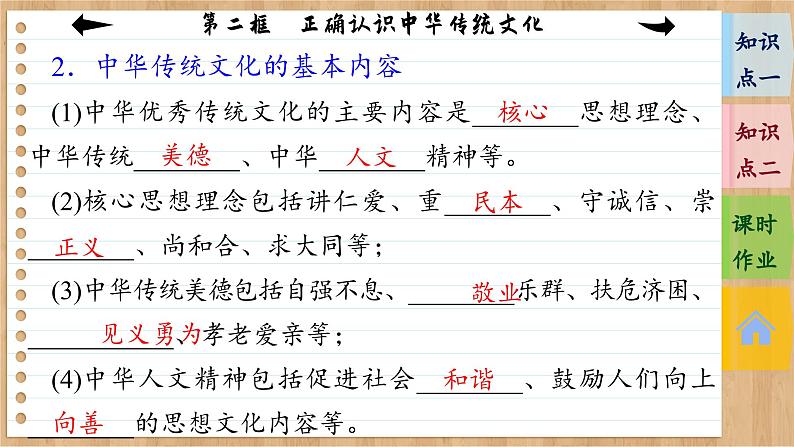 第二框 正确认识中华传统文化
2．中华传统文化的基本内容
(1)中华优秀传统文化的主要内容是核心思想理念、
中华传统美德、中华人文精神等。
(2)核心思想理念包括讲仁爱、重民本、守诚信、崇
正义、尚和合、求大同等；
(3)中华传统美德包括自强不息、敬业乐群、扶危济困、
见义勇为、孝老爱亲等；
(4)中华人文精神包括促进社会和谐、鼓励人们向上
向善的思想文化内容等。
知识
点一
知识
点二
课时
作业